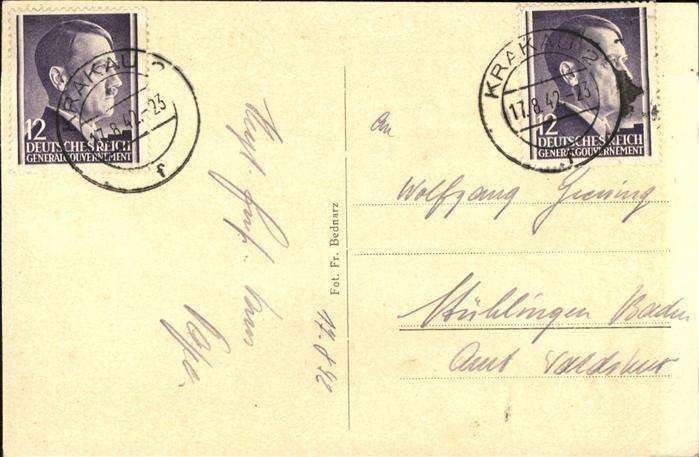 12
DEUTSCHES REICH
GENERALGOUVERNEMENT
KRAKAU 2
17.8.42-23
f
12
DEUTSCHES REICH
GENERALGOUVERNEMENT
KRAKAU 2
17.8.42-23
f
17.8.42
Fot. Fr. Bednarz
An
Wolfgang
Stühlingen Baden
Amt Waldshut